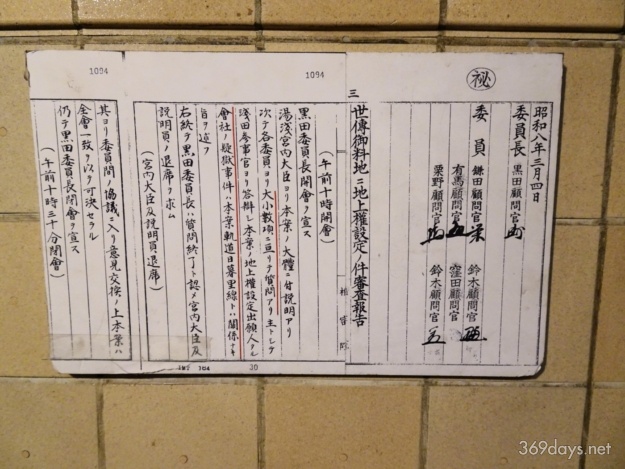 1094
1094
㊙
昭和八年三月四日
委員長 黒田顧問官
委員 鎌田顧問官
有馬顧問官
栗野顧問官
鈴木顧問官
窪田顧問官
鈴木顧問官
三
世傳御料地ニ地上權設定ノ件審査報告
(午前十時開會)
黒田委員長開會ヲ宣ス
湯淺宮内大臣ヨリ本案ノ大體ニ付説明アリ
次テ各委員ヨリ大小數項ニ亘リテ質問アリ主トシテ
淺田参事官ヨリ答辯シ本案ノ地上權設定出願人タル
會社ノ疑獄事件ハ本案軌道日暮里線トハ關係ナキ
旨ヲ述フ
右終テ黒田委員長ハ質問終了ト認メ宮内大臣及
説明員ノ退席ヲ求ム
(宮内大臣及説明員退席)
其ヨリ委員間ノ協議ニ入リ意見交換ノ上本案ハ
全會一致ヲ以テ可決セラル
仍テ黒田委員長閉會ヲ宣ス
(午前十時三十分閉會)
30
369days.net